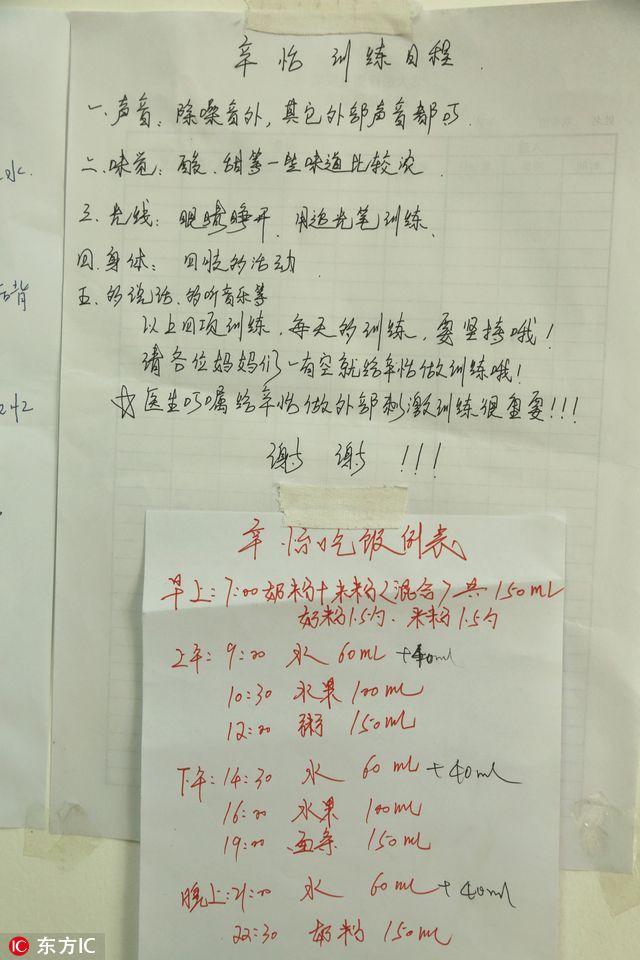 水
辛怡 训练日程.
一.声音: 除噪音外, 其它外部声音都可.
二.味觉: 酸、甜等一些味道比较浓.
三.光线: 眼睛睁开、用追光笔训练.
四.身体: 四肢的活动.
五.多说话、多听音乐等
后背
以上四项训练, 每天多训练, 要坚持哦!
请各位妈妈们一有空就给辛怡做训练哦!
☆医生叮嘱给辛怡做外部刺激训练很重要!!!
谢谢!!!
辛怡吃饭例表
早上: 7:00 奶粉+米粉<混合>共150mL
奶粉1.5勺. 米粉1.5勺
上午: 9:00 水 60mL +40ml
10:30 水果 100mL
12:00 粥 150mL
下午: 14:30 水 60mL +40ml
16:00 水果 100mL
19:00 面条 150mL
晚上: 21:00 水 60mL +40ml
22:30 奶粉 150mL
IC 东方IC